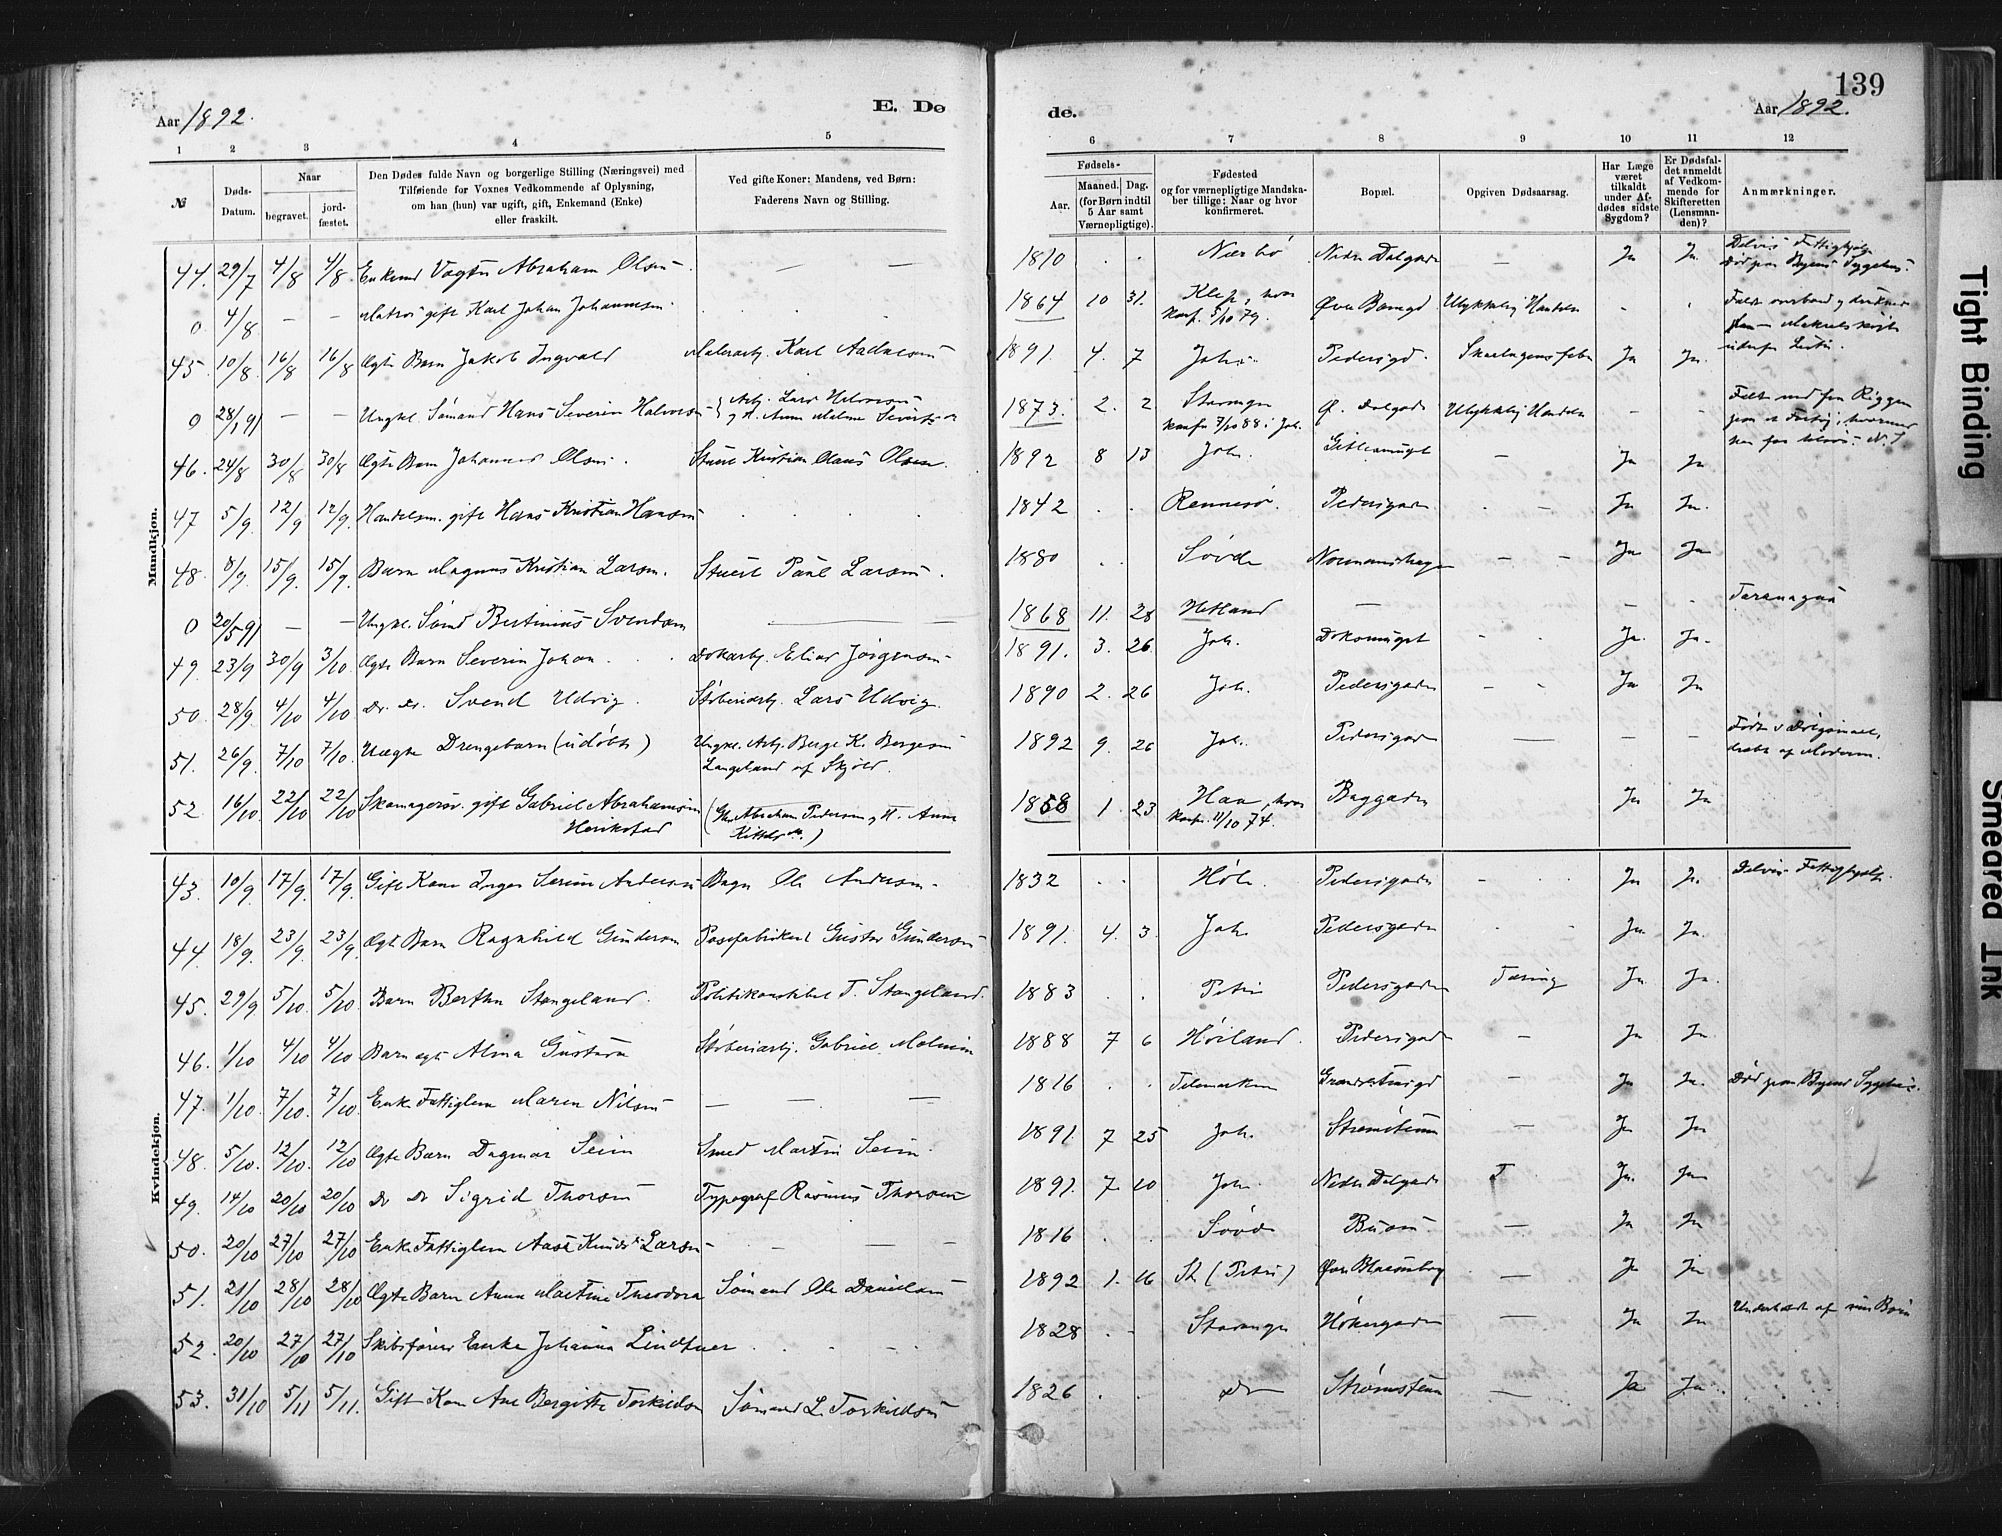 139
Aar 1892. E. Dø
de. Aar 1892.
1 2 3 4 5
6 7 8 9 10 11 12
№ Døds-Datum. Naar begravet. jord-fæstet. Den Dødes fulde Navn og borgerlige Stilling (Næringsvei) med Tilføiende for Voxnes Vedkommende af Oplysning, om han (hun) var ugift, gift, Enkemand (Enke) eller fraskilt. Ved gifte Koner: Mandens, ved Børn: Faderens Navn og Stilling.
Fødsels- Aar. Maaned. Dag. (for Børn indtil 5 Aar samt Værnepligtige). Fødested og for værnepligtige Mandskaber tillige: Naar og hvor konfirmeret. Bopæl. Opgiven Dødsaarsag. Har Læge været tilkaldt under Afdødes sidste Sygdom? Er Dødsfaldet anmeldt af Vedkommende for Skifteretten (Lensmanden)? Anmærkninger.
Mandkjøn.
44. 29/7 4/8 4/8 Enkemd Vægter Abraham Olsen — — 1810 . . Nærbø Nedre Dalgade — Ja Ja.
0 4/8 — — Matros gift Karl Johan Johannesen . . 1864 10 31. Klep, hvor konf. 5/10 79. Øvre Banegd Ulykkelig Hændelse - .
45 10/8. 16/8 16/8 Ægte Barn Jakob Ingvald Malerarb. Karl Aadnesen 1891. 4. 7 Joh. Pedersgd. Skarlagensfeber Ja Ja.
0 28/1 91 — — Ungkl. Sømand Hans Severin Halvorsen Arb. Lars Halvorsen 1873. 2. 2 Stavanger konf. 7/10 88 i Joh. Ø. Dalgade Ulykkelig Hændelse - -
46. 24/8 30/8 30/8 Ægte Barn Johannes Olsen. Stuert Kristian Olaus Olsen. 1892 8 13 Joh. — Ja Ja
47 5/9. 12/9 12/9. Handelsm. gift Hans Kristian Hansen . . . 1842 . . Rennesø. Pedersgaden . — Ja Ja.
48. 8/9. 15/9. 15/9. Barn Magnus Kristian Larsen. Stuert Paul Larsen. 1880 . . Søvde — — Ja Ja
0 20/5 91 — — Ungkl. Sømd Bertinius Svendsen — 1868 11. 28 Hetland — - -
49. 23/9 30/9 3/10. Ægte Barn Severin Johan. Dokarb. Elias Jørgensen 1891. 3. 26 Joh. - . Ja. Ja.
50. 28/9. 4/10 4/10. Do. Do. Svend Udvig. Støberiarb. Lars Udvig. 1890 2. 26 Joh. Pedersgaden - . Ja Ja
51. 26/9. 7/10 7/10. Uægte Drengebarn (udøbt) Ungkl. Arb. Berge K. Bergesen Langeland af Skjold. 1892 9. 26 Joh. Pedersgaden — - - dræbt af Moderen.
52. 16/10. 22/10 22/10 gift Gabriel Abrahamsen (Abraham Pedersen 1858 1. 23 Haa, hvor konf. 11/10 74. Baggaden Ja Ja
Kvindekjøn.
43. 10/9. 17/9. 17/9. Gift Kone Inger Serine Andersen Ole Andersen. 1832 . . Høle. Pedersgaden - . Ja Ja. Delvis Fattighjælp.
44. 18/9. 23/9. 23/9. Ægte Barn Ragnhild Gundersen Posefabrikant Gustav Gundersen 1891. 4. 3. Joh. Pedersgaden . . Ja Ja.
45. 29/9 5/10 5/10. Barn Bertha Stangeland. Politikonstabel T. Stangeland. 1883 . . Petri Pedersgaden Tæring Ja Ja.
46. 1/10 4/10 4/10 Barn ægte Alma Gustava Støberiarb. Gabriel Malmin 1888 7 6 Høiland. Pedersgaden — Ja Ja.
47. 1/10. 7/10. 7/10. Enke Fattiglem Maren Nilsen — — — 1816 . . Telemarken — Ja Ja. Død paa Byens Sygehus.
48. 5/10. 12/10. 12/10 Ægte Barn Dagmar Seim Smed Martin Seim. 1891. 7 25 Joh. Strømsteen — Ja Ja
49. 14/10 20/10 20/10 Do Do Sigrid Thorsen Typograf Rasmus Thorsen 1891. 7. 10 Joh. Nedre Dalgade T Ja. Ja
50. 20/10 27/10 27/10 Enke Fattiglem Aase Knudsd. Larsen - — — 1816 . . Søvde — Ja Ja
51. 21/10 28/10 28/10 Ægte Barn Anna Martine Theodora Sømand Ole Danielsen 1892 1. 16 St (Petri) Øvre Blaasenborg — Ja Ja
52. 20/10 27/10 27/10 Skibsfører Enke Johanna Lindtner . . — . 1828 . . Stavanger Høkergaden — Ja Ja Underholdt af sine Børn
53. 31/10 5/11 5/11. Gift Kone Ane Bergitte Torkildsen Sømand L. Torkildsen 1826 . . do Strømsteen — Ja Ja
Tight Binding
Smeared Ink